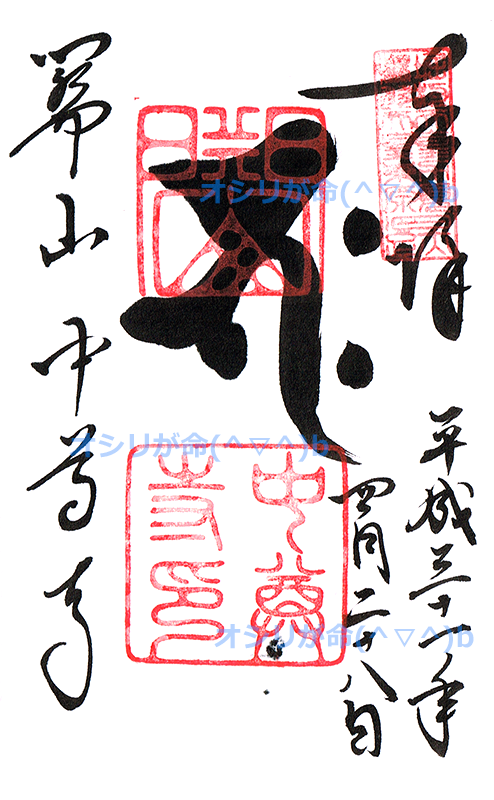 奉拝
平成三十一年
四月二十八日
關山 中尊寺
中尊
寺印
オシリが命(^▽^)b
オシリが命(^▽^)b
オシリが命(^▽^)b